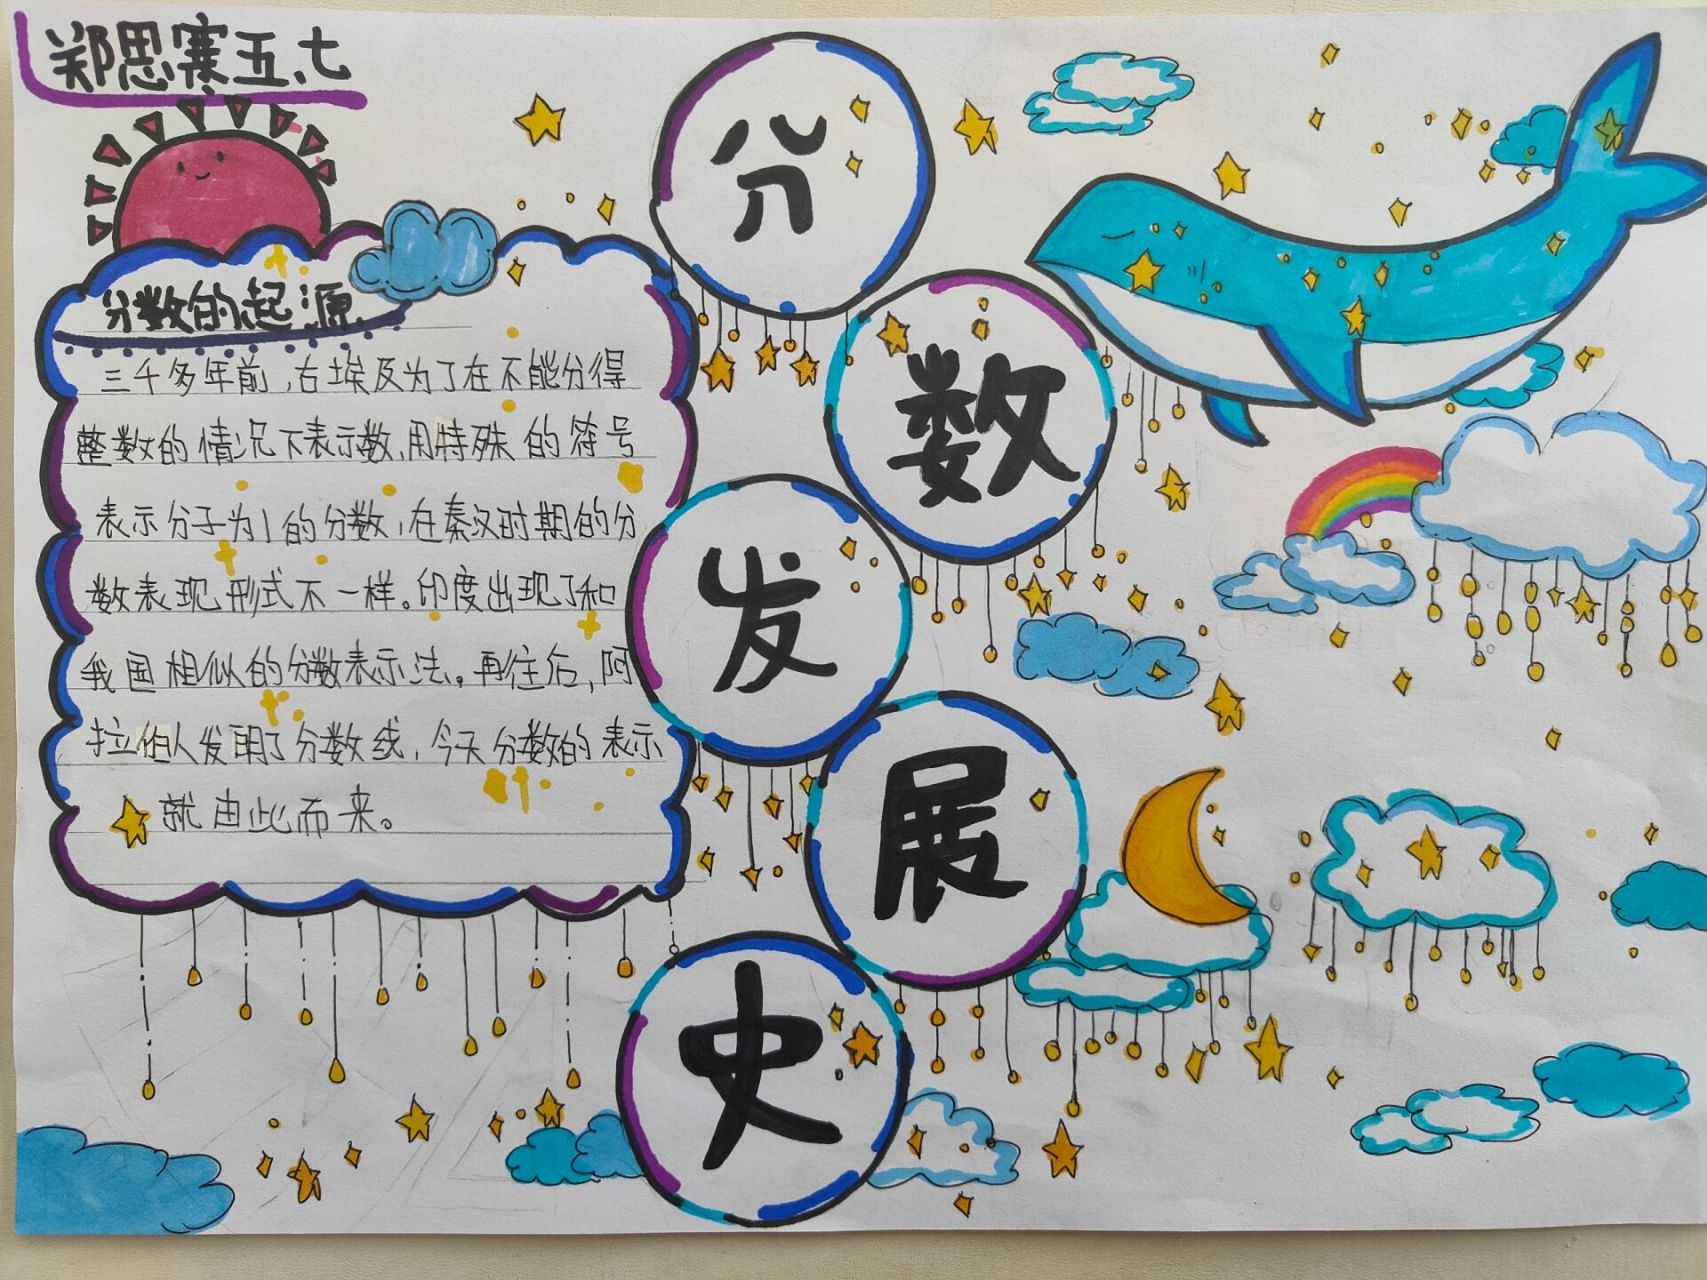 郑思寒五.七
分数发展史
分数的起源
三千多年前,古埃及为了在不能分得
整数的情况下表示数,用特殊的符号
表示分子为1的分数,在秦汉时期的分
数表现形式不一样。印度出现了和
我国相似的分数表示法。再往后,阿
拉伯人发明了分数线,今天分数的表示
就由此而来。